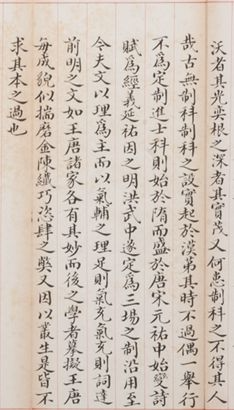 沃者其光奕根之深者其實茂又何患制科之不得其人
哉古無制科制科之設實起於漢第其時不過偶一舉行
不爲定制進士科則始於隋而盛於唐宋元祐中始變詩
賦爲經義延祐因之明洪武中遂定爲三場之制沿用至
今夫文以理爲主而以氣輔之理足則氣充氣充則詞達
前明之文如王唐諸家各有其妙而後之學者摹擬王唐
每成貌似揣磨金陳纖巧恣肆之獘又因以叢生是皆不
求其本之過也